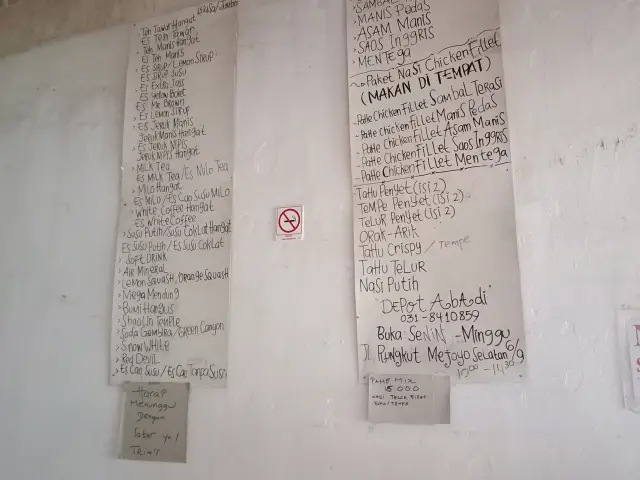 Teh Tawar Hangat
Es Teh Tawar
Teh Manis Hangat
Es Teh Manis
Es Sirup / Lemon Sirup
Es Sirup Susu
Es Extra Joss
Es Me Brown
Es Lemon Sirup
Es Jeruk Manis
Jeruk Manis Hangat
Es Jeruk Nipis
Jeruk Nipis Hangat
Milk Tea
Es Milk Tea / Es Nilo Tea
Milo Hangat
Es Milo / Es Cao Susu Milo
White Coffee Hangat
Es White Coffee
Susu Putih / Susu Coklat Hangat
Es Susu Putih / Es Susu Coklat
Soft Drink
Air Mineral
Lemon Squash / Orange Squash
Mega Mendung
Bumi Hangus
Shaolin Temple
Soda Gembira / Green Canyon
Snow White
Red Devil
Es Cao Susu / Es Cao Tanpa Susu
Harap
Menunggu
Dengan
Sabar ya!
Manis Pedas
Asam Manis
Saos Inggris
Mentega
Paket Nasi Chicken Fillet
(MAKAN DI TEMPAT)
Pahe Chicken Fillet Sambal Terasi
Pahe Chicken Fillet Manis Pedas
Pahe Chicken Fillet Asam Manis
Pahe Chicken Fillet Saos Inggris
Pahe Chicken Fillet Mentega
Tahu Penyet (isi 2)
Tempe Penyet (isi 2)
Telur Penyet (isi 2)
Orak-Arik
Tahu Crispy / Tempe
Tahu Telur
Nasi Putih
"Depot Abadi"
031-8410859
Buka Senin - Minggu
Jl. Rungkut Mejoyo Selatan 6/9
PAHE MIX
15.000